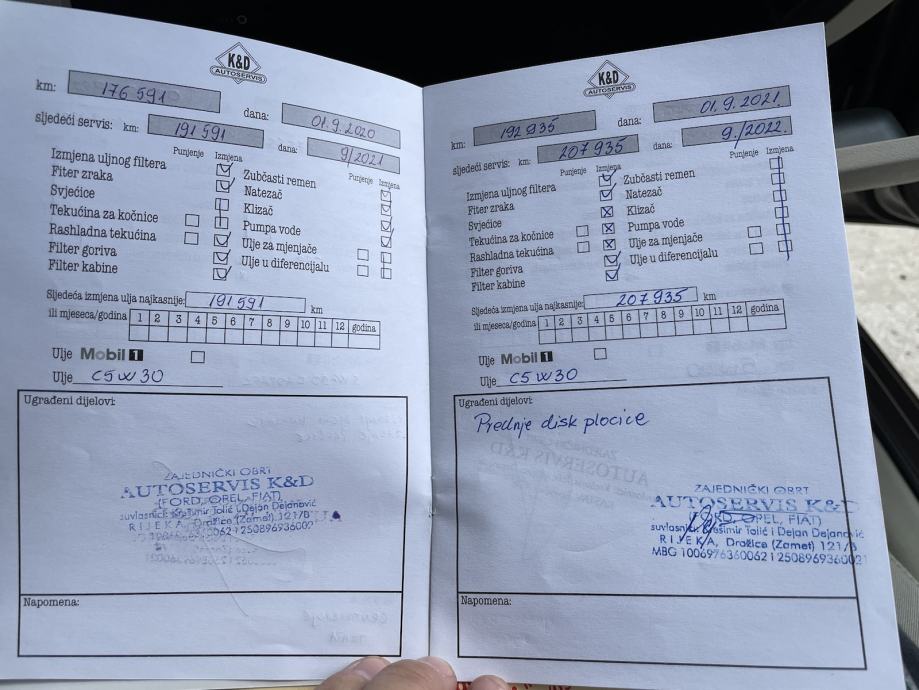 K&D
AUTOSERVIS
km: 176 591 dana: 01.9.2020
sljedeći servis: km: 191 591 dana: 9/2021
Punjenje Izmjena Punjenje Izmjena
Izmjena uljnog filtera Zubčasti remen
Fiter zraka Natezač
Svjećice Klizač
Tekućina za kočnice Pumpa vode
Rashladna tekućina Ulje za mjenjače
Filter goriva Ulje u diferencijalu
Filter kabine
Sljedeća izmjena ulja najkasnije: 191 591 km
ili mjeseca/godina 1 2 3 4 5 6 7 8 9 10 11 12 godina
Ulje Mobil 1
Ulje C5W30
Ugrađeni dijelovi:
ZAJEDNIČKI OBRT
AUTOSERVIS K&D
(FORD, OPEL, FIAT)
suvlasnici: Krešimir Tolić i Dejan Dejanović
RIJEKA, Dražice (Zamet) 121/B
Napomena:
K&D
AUTOSERVIS
km: 192 935 dana: 01.9.2021.
sljedeći servis: km: 207 935 dana: 9./2022.
Punjenje Izmjena Punjenje Izmjena
Izmjena uljnog filtera Zubčasti remen
Fiter zraka Natezač
Svjećice Klizač
Tekućina za kočnice Pumpa vode
Rashladna tekućina Ulje za mjenjače
Filter goriva Ulje u diferencijalu
Filter kabine
Sljedeća izmjena ulja najkasnije: 207 935 km
ili mjeseca/godina 1 2 3 4 5 6 7 8 9 10 11 12 godina
Ulje Mobil 1
Ulje C5W30
Ugrađeni dijelovi:
Prednje disk plocice
ZAJEDNIČKI OBRT
AUTOSERVIS K&D
(FORD, OPEL, FIAT)
suvlasnici: Krešimir Tolić i Dejan Dejanović
RIJEKA, Dražice (Zamet) 121/B
Napomena: